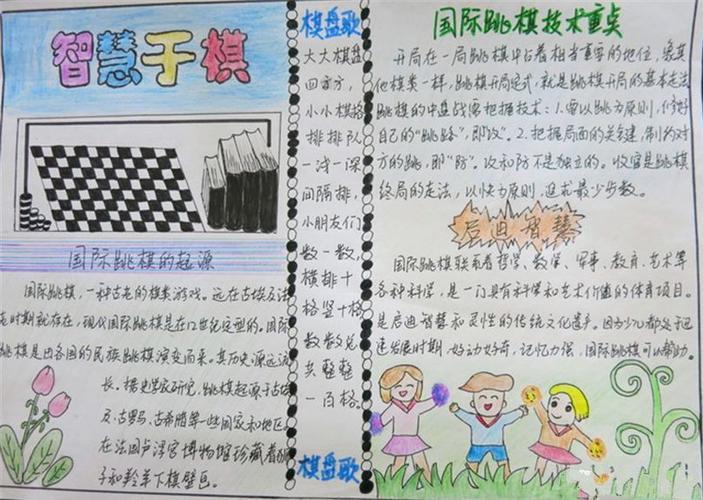 智慧于棋
国际跳棋的起源
国际跳棋,一种古老的棋类游戏。远在古埃及法
老时期就存在,现代国际跳棋是在12世纪定型的。国际
跳棋是由各国的民族跳棋演变而来。其历史源远流
长。据史学家研究,跳棋起源于古埃
及、古罗马、古希腊等一些国家和地区。
在法国卢浮宫博物馆珍藏着
子和羚羊下棋壁画。
棋盘歌
大大棋盘
四方方,
小小棋格
排排队
一浅一深
间隔排,
小朋友们
数一数,
横排十
格竖十格
数数总
共整整
一百格。
棋盘歌
国际跳棋技术重点
开局在一局跳棋中占着相当重要的地位,像其
他棋类一样,跳棋开局定式,就是跳棋开局的基本走法
跳棋的中盘战需把握技术:1.要以跳为原则,
自己的“跳路”,即“攻”。2.把握局面的关键,制为对
方的跳,即“防”。攻和防不是独立的。收官是跳棋
终局的走法,以快为原则,追求最少步数。
启迪智慧
国际跳棋联系着哲学、数学、军事、教育、艺术等
各种科学,是一门具有科学和艺术价值的体育项目。
是启迪智慧和灵性的传统文化遗产。因为少儿都处于迅
速发展时期,好动好奇,记忆力强,国际跳棋可以帮助。